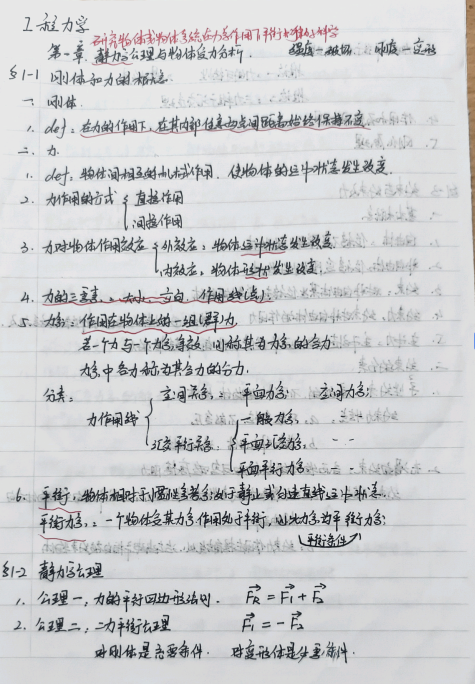 工程力学
研究物体或物体系统在力系作用下平衡规律的科学
第一章 静力学公理与物体受力分析. 强度—破坏 刚度—变形
§1-1 刚体和力的概念
一. 刚体
1. def: 在力的作用下, 在其内部任意两点间距离始终保持不变
二. 力
1. def: 物体间相互的机械作用. 使物体的运动状态发生改变.
2. 力作用的方式 { 直接作用
间接作用
3. 力对物体作用效应 { 外效应: 物体运动状态发生改变.
内效应: 物体形状发生改变.
4. 力的三要素: 大小 方向 作用线(点).
5. 力系: 作用在物体上的一组(群)力
若一个力与一个力系等效, 则称其为力系的合力
力系中各力称为其合力的分力.
分类:
力作用线 { 空间关系: 平面力系: 空间力系:
汇交平行关系 { 一般力系:
平面汇交力系: - -
平面平行力系. - -
6. 平衡: 物体相对于惯性参考系处于静止或匀速直线运动状态.
平衡力系: 一个物体受某力系作用处于平衡, 则此力系为平衡力系
(平衡条件)
§1-2 静力学公理
1. 公理一, 力的平行四边形法则. F_R = F_1 + F_2
2. 公理二, 二力平衡公理 F_1 = -F_2
对刚体是充要条件. 对变形体是必要条件.